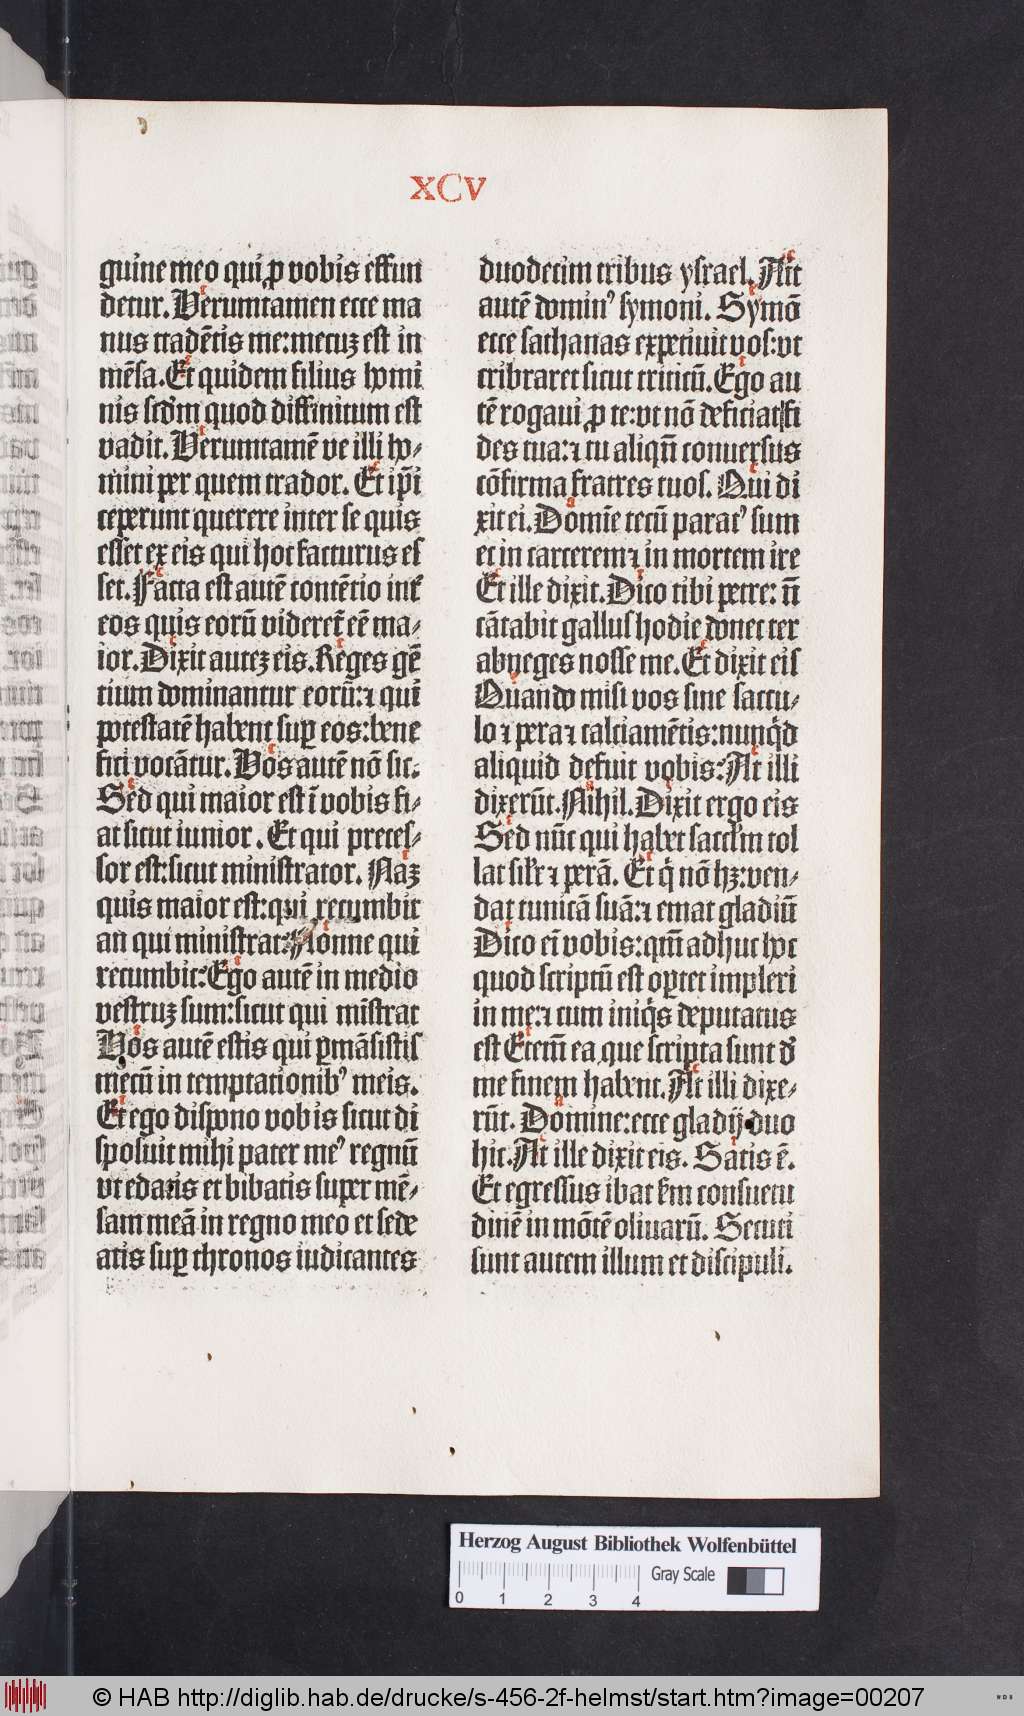 XCV
guine meo qui ꝓ vobis effun
detur. Verumtamen ecce ma
nus tradētis me: mecuꝫ est in
mēsa. Et quidem filius homi
nis scd'm quod diffinitum est
vadit. Verumtamē ve illi ho-
mini per quem trador. Et ip̄i
ceperunt querere inter se quis
esset ex eis qui hoc facturus es
set. Facta est autē contētio int̄
eos quis eorū videret̄ eē ma-
ior. Dixit auteꝫ eis. Reges gē
tium dominantur eorū: ⁊ qui
potestatē habent suꝑ eos: bene
fici vocātur. Vos autē nō sic.
Sed qui maior est ī vobis fi-
at sicut iunior. Et qui preces-
sor est: sicut ministrator. Naꝫ
quis maior est: qui recumbit
an qui ministrat: Nonne qui
recumbit: Ego autē in medio
vestruꝫ sum: sicut qui mīstrat
Vos autē estis qui ꝑmāsistis
mecū in temptationibꝰ meis.
Et ego dispono vobis sicut di
sposuit mihi pater meꝰ regnū
vt edatis et bibatis super mē-
sam meā in regno meo et sede
atis suꝑ thronos iudicantes
duodecim tribus ysrael. Ait
autē dominꝰ symoni. Symō
ecce sathanas expetiuit vos: vt
cribraret sicut triticū. Ego au
tē rogaui ꝓ te: vt nō deficiat fi
des tua: ⁊ tu aliqn̄ conuersus
cōfirma fratres tuos. Qui di
xit ei. Domīe tecū paratꝰ sum
et in carcerem ⁊ in mortem ire
Et ille dixit. Dico tibi petre: n̄
cātabit gallus hodie donec ter
abneges nosse me. Et dixit eis
Quando misi vos sine saccu-
lo ⁊ pera ⁊ calciamētis: nunqd̄
aliquid defuit vobis: At illi
dixerūt. Nihil. Dixit ergo eis
Sed nūc qui habet sacclm tol
lat silr ⁊ perā. Et q̄ nō hꝫ: ven-
dat tunicā suā: ⁊ emat gladiū
Dico ei vobis: qm̄ adhuc hoc
quod scriptū est oꝑtet impleri
in me: ⁊ cum iniq̄s deputatus
est Etem̄ ea que scripta sunt d'
me finem habent. At illi dixe-
rūt. Domine: ecce gladij duo
hic. At ille dixit eis. Satis ē.
Et egressus ibat scd'm consuetu
dinē in mōtē oliuarū. Secuti
sunt autem illum et discipuli.
Herzog August Bibliothek Wolfenbüttel
Gray Scale
0 1 2 3 4
© HAB http://diglib.hab.de/drucke/s-456-2f-helmst/start.htm?image=00207